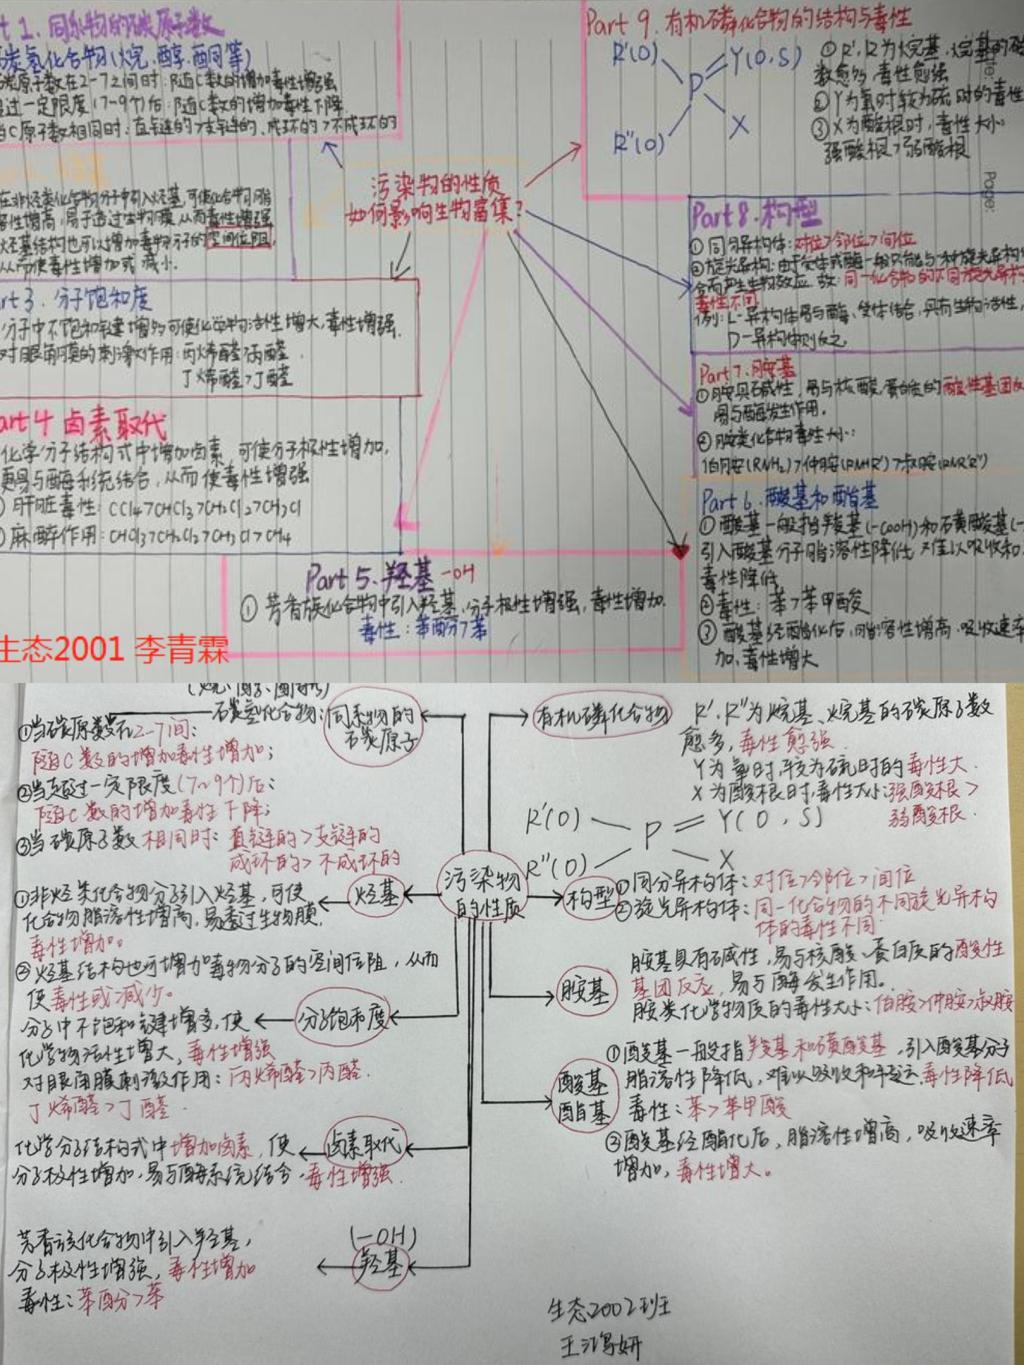 t 1. 同系物的碳原子数
碳氢化合物(烷、醇、酮等)
碳原子数在2-7之间时:随C数的增加毒性增强
超过一定限度(7~9个)后:随C数的增加毒性下降
当C原子数相同时:直链的>支链的、成环的>不成环的
在非烃类化合物分子中引入烃基,可使化合物脂
溶性增高,易于透过生物膜,从而毒性增强
烃基结构也可以增加毒物分子的空间位阻,
从而使毒性增加或减小.
art 3. 分子饱和度
分子中不饱和键增多,可使化学物活性增大,毒性增强.
对眼角膜的刺激作用:丙烯醛>丙醛
丁烯醛>丁醛
art 4 卤素取代
化学分子结构式中增加卤素,可使分子极性增加,
更易与酶系统结合,从而使毒性增强
肝脏毒性:CCl4>CHCl3>CH2Cl2>CH3Cl
麻醉作用:CHCl3>CH2Cl2>CH3Cl>CH4
Part 5. 羟基 -OH
① 芳香族化合物中引入羟基,分子极性增强,毒性增加.
毒性:苯酚>苯
污染物的性质
如何影响生物富集?
Part 9. 有机磷化合物的结构与毒性
R'(O)
Y(O,S)
P
R''(O)
X
① R'、R''为烷基,烷基的碳
数愈多,毒性愈强
② Y为氧时较为硫时的毒性
③ X为酸根时,毒性大小:
强酸根>弱酸根
Page:
Part 8. 构型
① 同分异构体:对位>邻位>间位
② 旋光异构:由于受体或酶一般只能与一种旋光异构
合而产生生物效应,故:同一化合物的不同旋光异构
毒性不同
例:L-异构体易与酶、受体结合,具有生物活性,
D-异构体则反之
Part 7. 胺基
① 胺具碱性,易与核酸、蛋白质的酸性基团反
易与酶发生作用.
② 胺类化合物毒性大小:
伯胺(RNH2)>仲胺(RNHR')>叔胺(RNR'R'')
Part 6. 酸基和酯基
① 酸基一般指羧基(-COOH)和磺酸基(-
引入酸基分子脂溶性降低,难以吸收和
毒性降低
② 毒性:苯>苯甲酸
③ 酸基经酯化后,脂溶性增高,吸收速率
加,毒性增大
生态2001 李青霖
(烷、醇、酮等)
碳氢化合物:
同系物的
碳原子
①当碳原数在2-7间:
随C数的增加毒性增加;
②当超过一定限度(7~9个)后:
随C数的增加毒性下降;
③当碳原子数相同时:直链的>支链的
成环的>不成环的
烃基
①非烃类化合物分子引入烃基,可使
化合物脂溶性增高,易透过生物膜,
毒性增加。
②烃基结构也可增加毒物分子的空间位阻,从而
使毒性或减少。
分子饱和度
分子中不饱和键增多,使
化学物活性增大,毒性增强
对眼角膜刺激作用:丙烯醛>丙醛.
丁烯醛>丁醛.
卤素取代
化学分子结构式中增加卤素,使
分子极性增加,易与酶系统结合,毒性增强.
(-OH)
羟基
芳香族化合物中引入羟基,
分子极性增强,毒性增加
毒性:苯酚>苯
污染物
的性质
有机磷化合物
R'、R''为烷基、烷基的碳原子数
愈多,毒性愈强.
Y为氧时,较为硫时的毒性大.
X为酸根时,毒性大小:强酸根>
弱酸根.
R'(O)
P
Y(O,S)
R''(O)
X
构型
①同分异构体:对位>邻位>间位
②旋光异构体:同一化合物的不同旋光异构
体的毒性不同.
胺基
胺基具有碱性,易与核酸、蛋白质的酸性
基团反应,易与酶发生作用。
胺类化学物质的毒性大小:伯胺>仲胺>叔胺
酸基
酯基
①酸基一般指羧基和磺酸基,引入酸基分子
脂溶性降低,难以吸收和转运,毒性降低
毒性:苯>苯甲酸
②酸基经酯化后,脂溶性增高,吸收速率
增加,毒性增大。
生态2002班